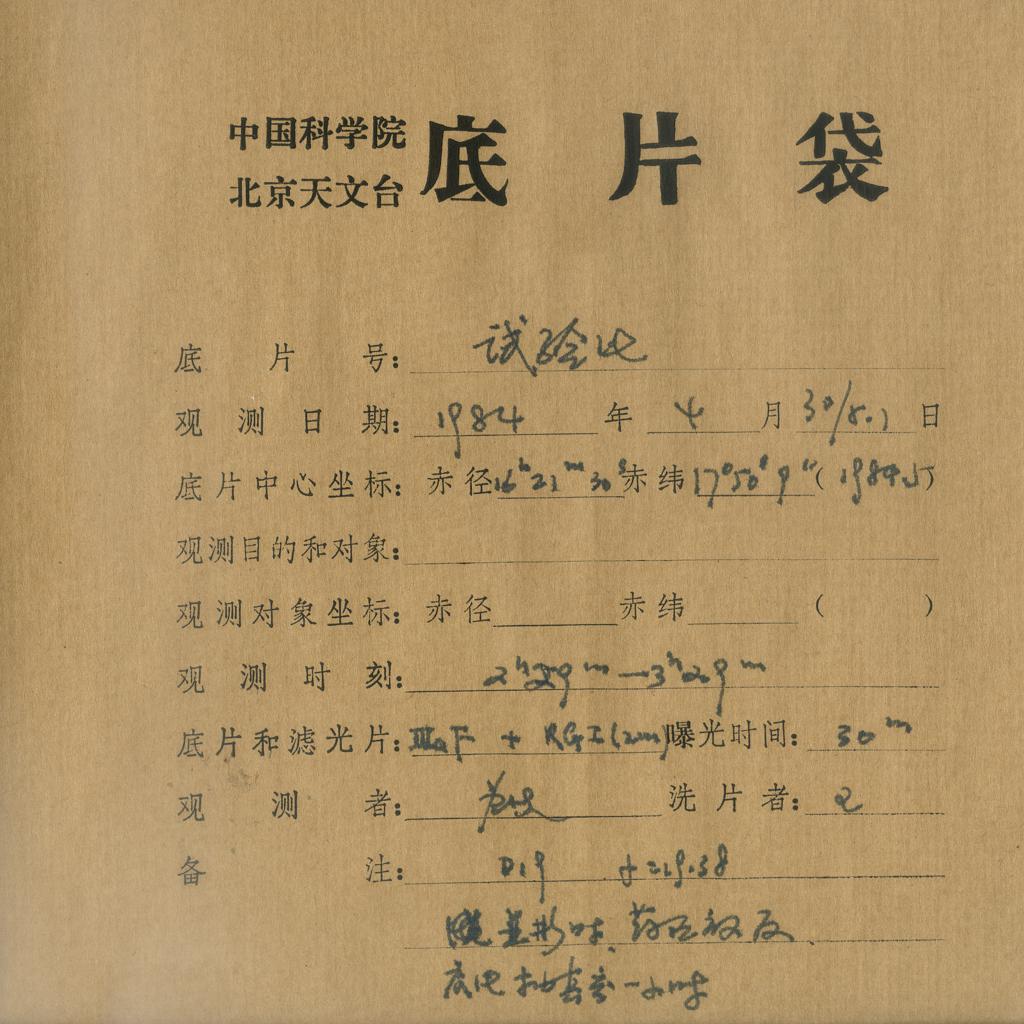 中国科学院
北京天文台
底片袋
底片号: 试验片
观测日期: 1984 年 4 月 30/5.1 日
底片中心坐标: 赤径 16h 21m 30s 赤纬 17°50′9″ (1984.5)
观测目的和对象:
观测对象坐标: 赤径 赤纬 ( )
观测时刻: 2h 29m — 3h 29m
底片和滤光片: IIIaF + RG1(2mm) 曝光时间: 30m
观测者: 洗片者:
备注: D19 f=219.38